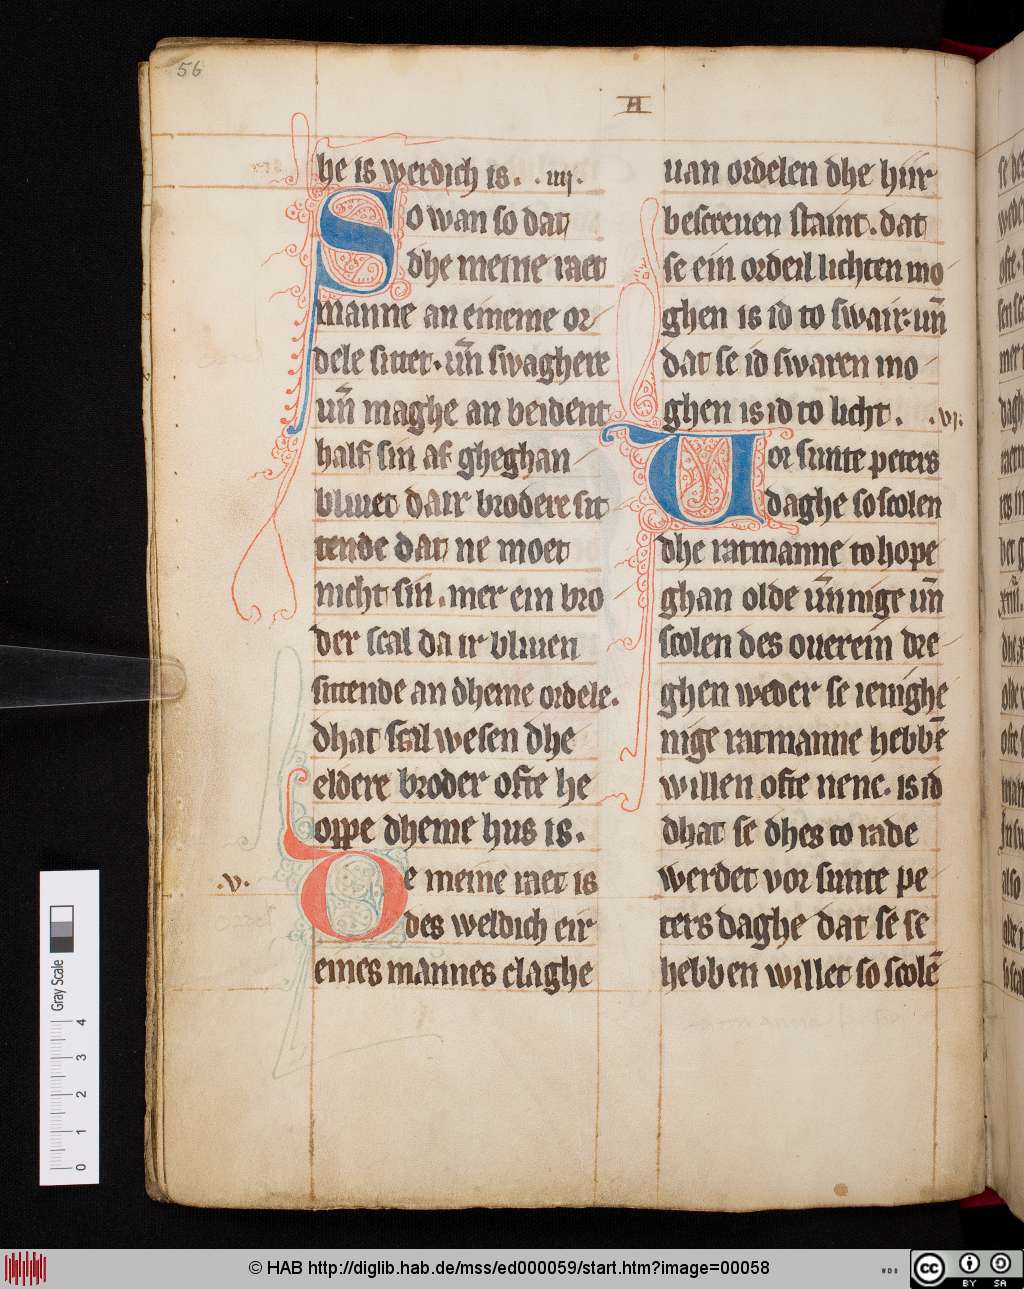 56
II
he is werdich is. .iiij.
So wan so dat
dhe meine raet
manne an eineme or
dele sittet. uñ swaghere
uñ maghe an beident
half sin af gheghan
bliuet dair brodere sit
tende dat ne moet
nicht sin. mer ein bro
der scal da ir bliuen
sittende an dheme ordele.
dhat scal wesen dhe
eldere broder ofte he
oppe dheme hus is.
.v.
De meine raet is
des weldich eir
eines mannes claghe
uan ordelen dhe hiir
bescreuen staint. dat
se ein ordeil lichten mo
ghen is id to swair: uñ
dat se id swaren mo
ghen is id to licht. .vj.
Uor sunte peters
daghe so scolen
dhe ratmanne to hope
ghan olde uñ nige uñ
scolen des ouerein dre
ghen weder se ienighe
nige ratmanne hebbē
willen ofte nene. is id
dhat se dhes to rade
werdet vor sunte pe
ters daghe dat se se
hebben willet so scolē
Gray Scale
0 1 2 3 4
© HAB http://diglib.hab.de/mss/ed000059/start.htm?image=00058
WDB
cc BY SA